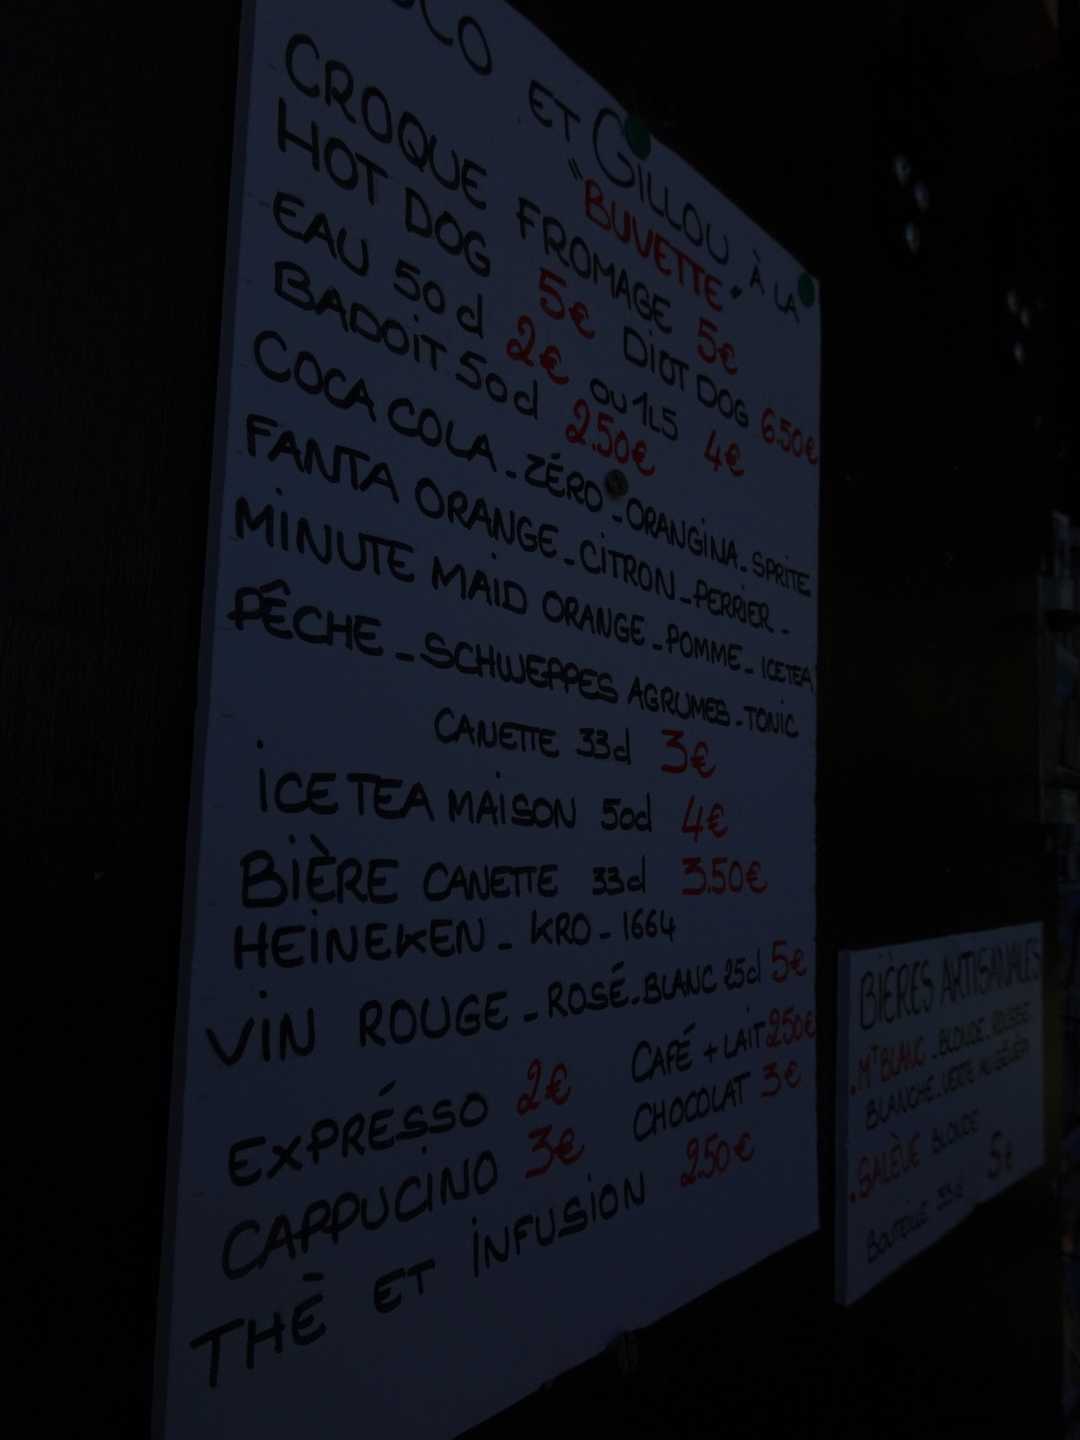 ET GILLOU À LA
"BUVETTE"
CROQUE FROMAGE 5€
HOT DOG 5€ DIOT DOG 6.50€
EAU 50cl 2€ OU 1L5 4€
BADOIT 50cl 2.50€
COCA COLA - ZÉRO - ORANGINA - SPRITE
FANTA ORANGE - CITRON - PERRIER -
MINUTE MAID ORANGE - POMME - ICETEA
PÊCHE - SCHWEPPES AGRUMES - TONIC
CANETTE 33cl 3€
ICE TEA MAISON 50cl 4€
BIÈRE CANETTE 33cl 3.50€
HEINEKEN - KRO - 1664
VIN ROUGE - ROSÉ - BLANC 25cl 5€
EXPRÉSSO 2€ CAFÉ + LAIT 2.50€
CAPPUCINO 3€ CHOCOLAT 3€
THÉ ET INFUSION 2.50€
BIÈRES ARTISANALES
.MT BLANC - BLONDE - ROUSSE
BLANCHE - VERTE AU GÉNÉPI
.SALÈVE BLONDE
BOUTEILLE 33cl 5€